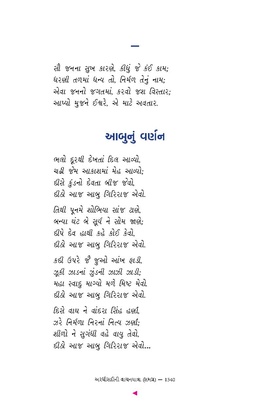 સૌ જનના સુખ કારણે, કીધું જે કંઈ કામ;
ધરણી તળમાં ધન્ય તો, નિર્મળ તેનું નામ;
એવા જનનો જગતમાં, કરવો જશ વિસ્તાર;
આપ્યો મુજને ઈશ્વરે, એ માટે અવતાર.
આબુનું વર્ણન
ભલો દૂરથી દેખતાં દિલ આવ્યો,
ચઢી જેમ આકાશમાં મેહ આવ્યો;
દીસે કુંડનો દેવતા બીજ જેવો,
દીઠો આજ આબુ ગિરિરાજ એવો.
તિથી પૂનમે શોભિયા સાંજ ટાણે,
બન્યા ઘંટ બે સૂર્ય ને સોમ જાણે;
દીપે દેવ હાથી કહે કોઈ કેવો,
દીઠો આજ આબુ ગિરિરાજ એવો.
કદી ઉપરે જૈ જુઓ આંખ ફાડી,
ઝૂકી ઝાડનાં ઝુંડની ઝાઝી ઝાડી;
મહા સ્વાદુ માગ્યો મળે મિષ્ટ મેવો
દીઠો આજ આબુ ગિરિરાજ એવો.
દિસે વાઘ ને વાંદરા સિંહ હર્ણા,
ઝરે નિર્મળા નિરનાં નિત્ય ઝર્ણા;
શીળો ને સુગંધી વહે વાયુ તેવો,
દીઠો આજ આબુ ગિરિરાજ એવો...